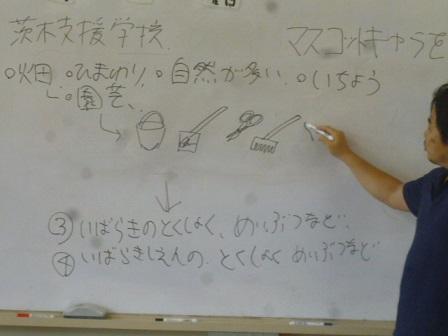 茨木支援学校. マスコットキャラを
○畑 ○ひまわり, ○自然が多い. ○いちょう
○園芸、
↓
③ いばらきのとくしょく、めいぶつなど、
④ いばらきしえんの、とくしょく めいぶつなど